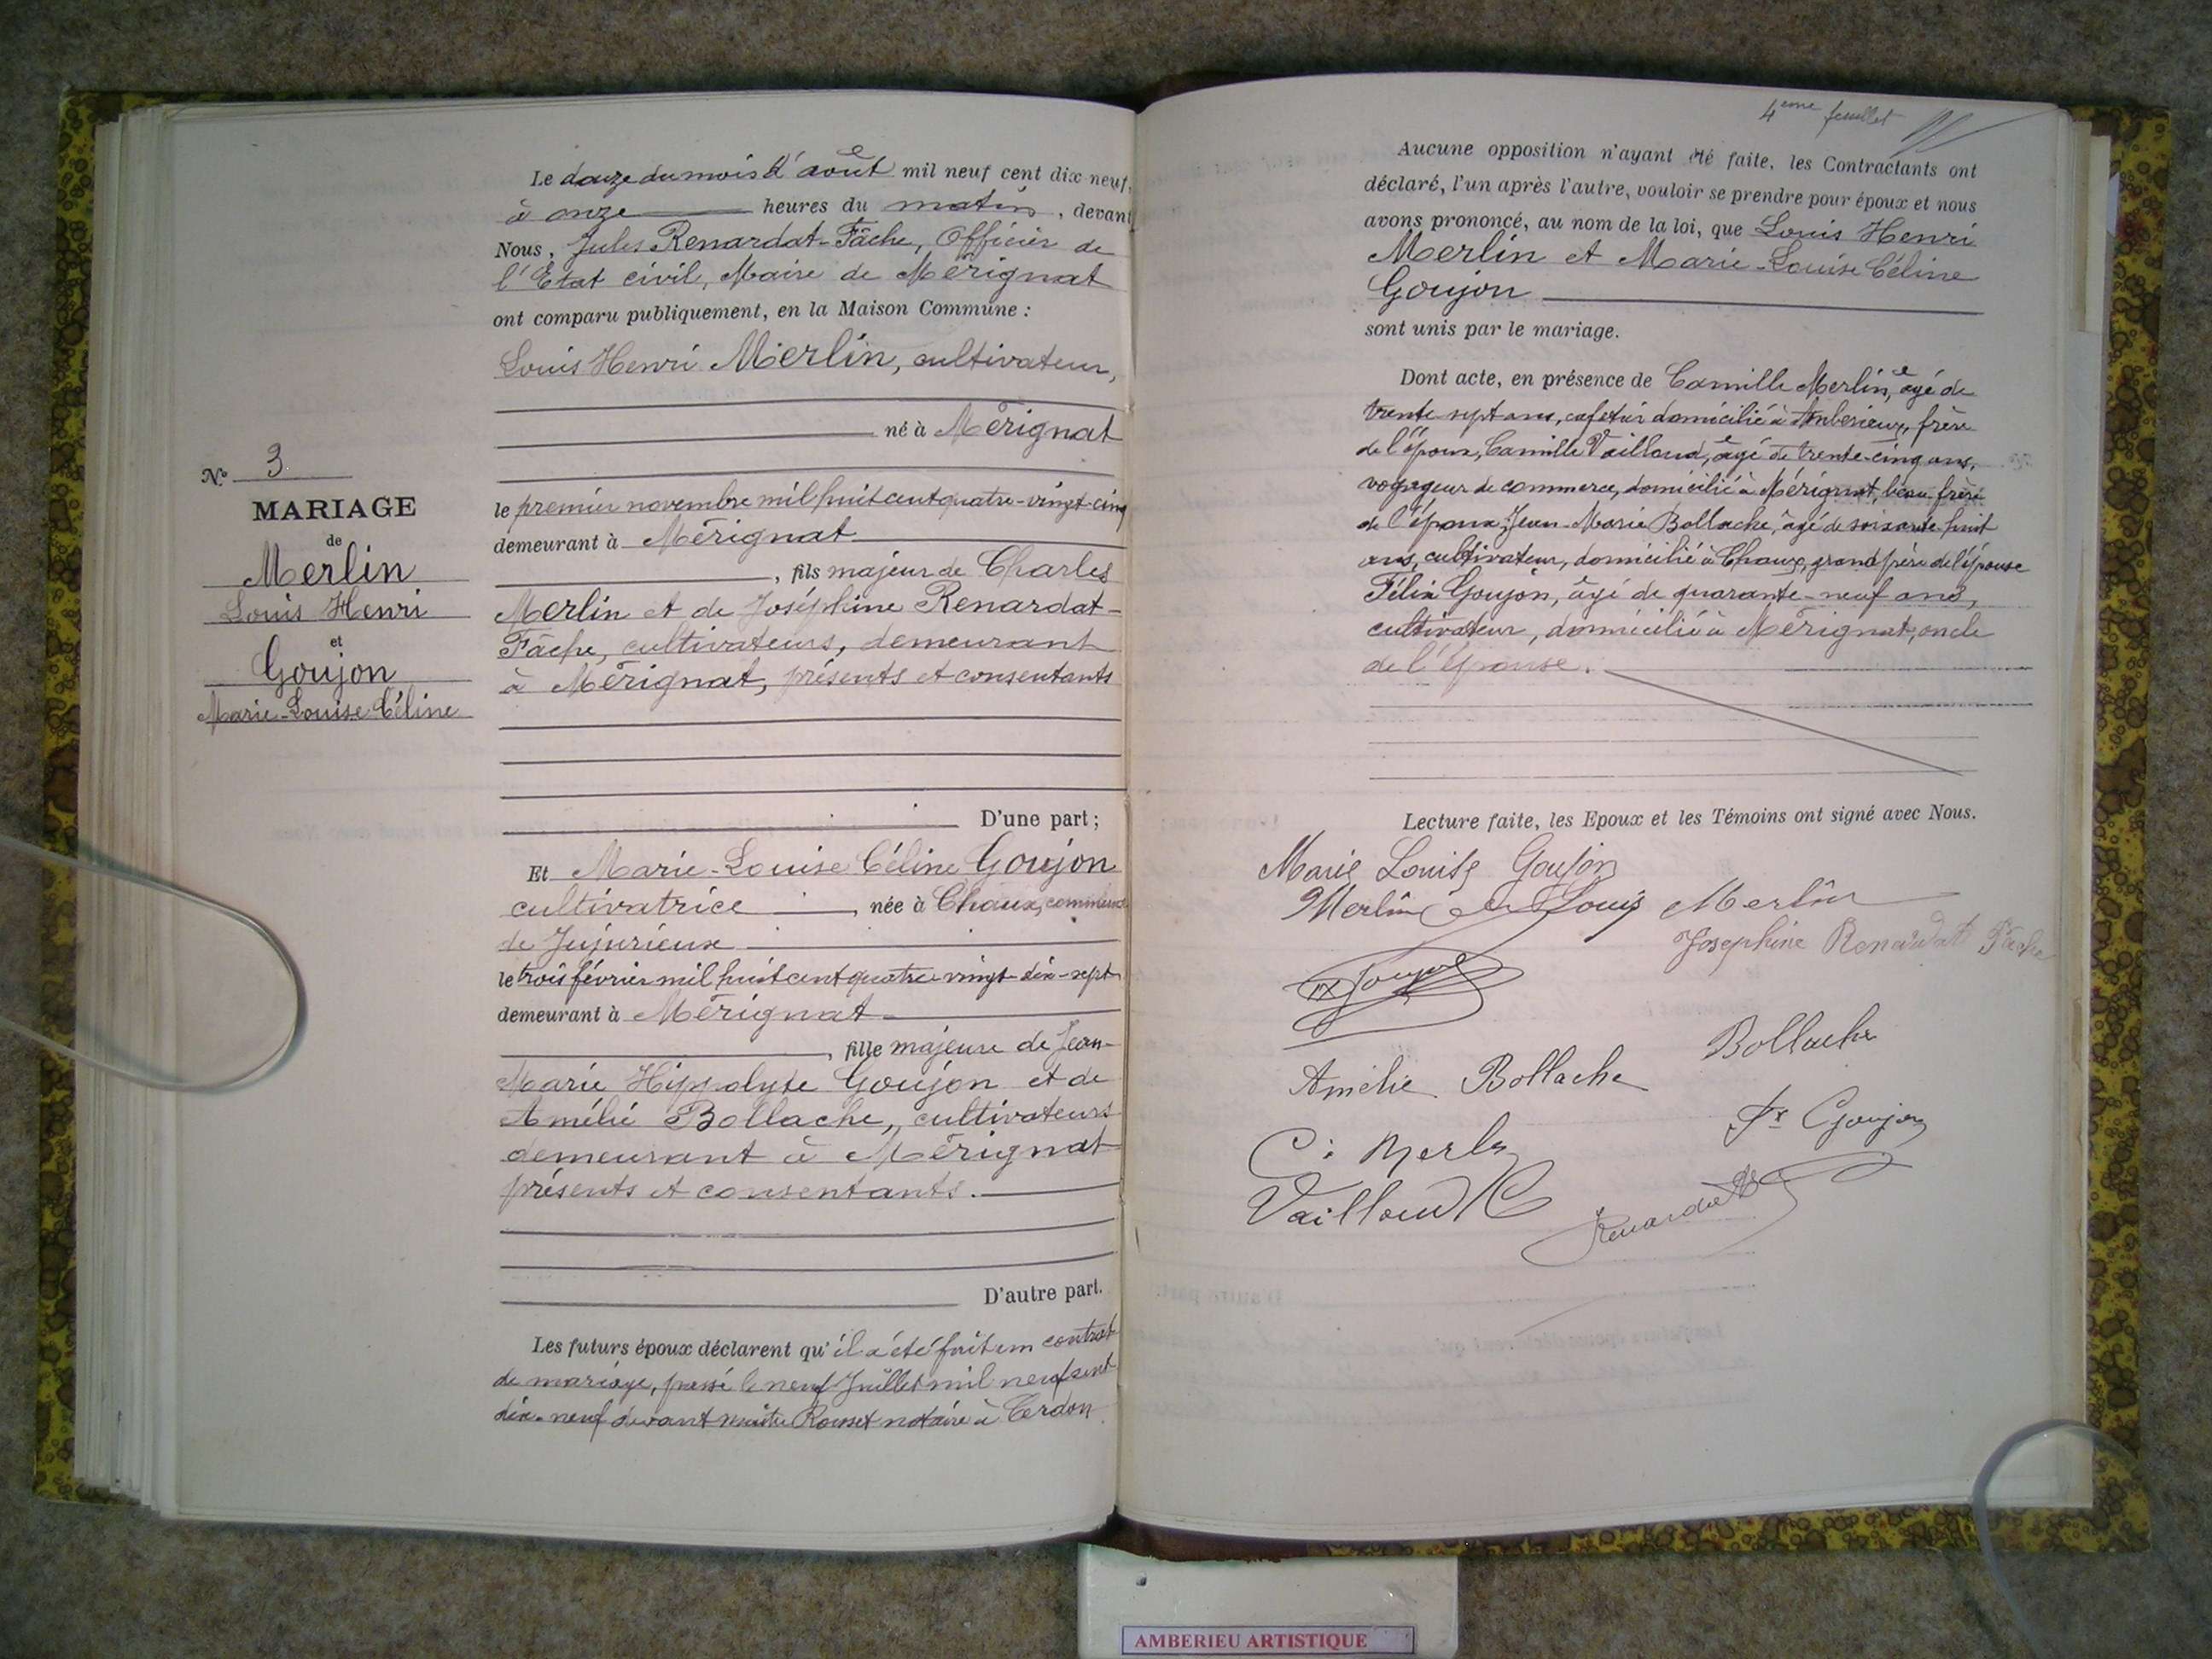 Le douze du mois d'août mil neuf cent dix neuf,
à onze heures du matin, devant
Nous, Jules Renardat-Fâche, Officier de
l'Etat civil, Maire de Mérignat
ont comparu publiquement, en la Maison Commune :
Louis Henri Merlin, cultivateur,
né à Mérignat
le premier novembre mil huit cent quatre-vingt-cinq
demeurant à Mérignat
, fils majeur de Charles
Merlin et de Joséphine Renardat-
Fâche, cultivateurs, demeurant
à Mérignat, présents et consentants
D'une part ;
N° 3
MARIAGE
de
Merlin
Louis Henri
et
Goujon
Marie-Louise Céline
Et Marie-Louise Céline Goujon
cultivatrice, née à Chaux, commune
de Jujurieux
le trois février mil huit cent quatre-vingt-dix-sept
demeurant à Mérignat
, fille majeure de Jean-
Marie Hippolyte Goujon et de
Amélie Bollache, cultivateurs
demeurant à Mérignat
présents et consentants.
D'autre part.
Les futurs époux déclarent qu'il a été fait un contrat
de mariage, passé le neuf Juillet mil neuf cent
dix-neuf devant maître Rousset notaire à Cerdon
4ème feuillet
Aucune opposition n'ayant été faite, les Contractants ont
déclaré, l'un après l'autre, vouloir se prendre pour époux et nous
avons prononcé, au nom de la loi, que Louis Henri
Merlin et Marie-Louise Céline
Goujon
sont unis par le mariage.
Dont acte, en présence de Camille Merlin, âgé de
trente sept ans, cafetier domicilié à Ambérieux, frère
de l'époux, Camille Vailloud, âgé de trente-cinq ans,
voyageur de commerce, domicilié à Mérignat, beau-frère
de l'époux, Jean-Marie Bollache, âgé de soixante-huit
ans, cultivateur, domicilié à Chaux, grand père de l'épouse
Félix Goujon, âgé de quarante-neuf ans,
cultivateur, domicilié à Mérignat, oncle
de l'épouse.
Lecture faite, les Epoux et les Témoins ont signé avec Nous.
Marie Louise Goujon
Merlin Louis Merlin
Josephine Renardat Fâche
Goujon
Bollache
Amélie Bollache
Fx Goujon
C. Merlin
Vailloud C
Renardat
AMBERIEU ARTISTIQUE